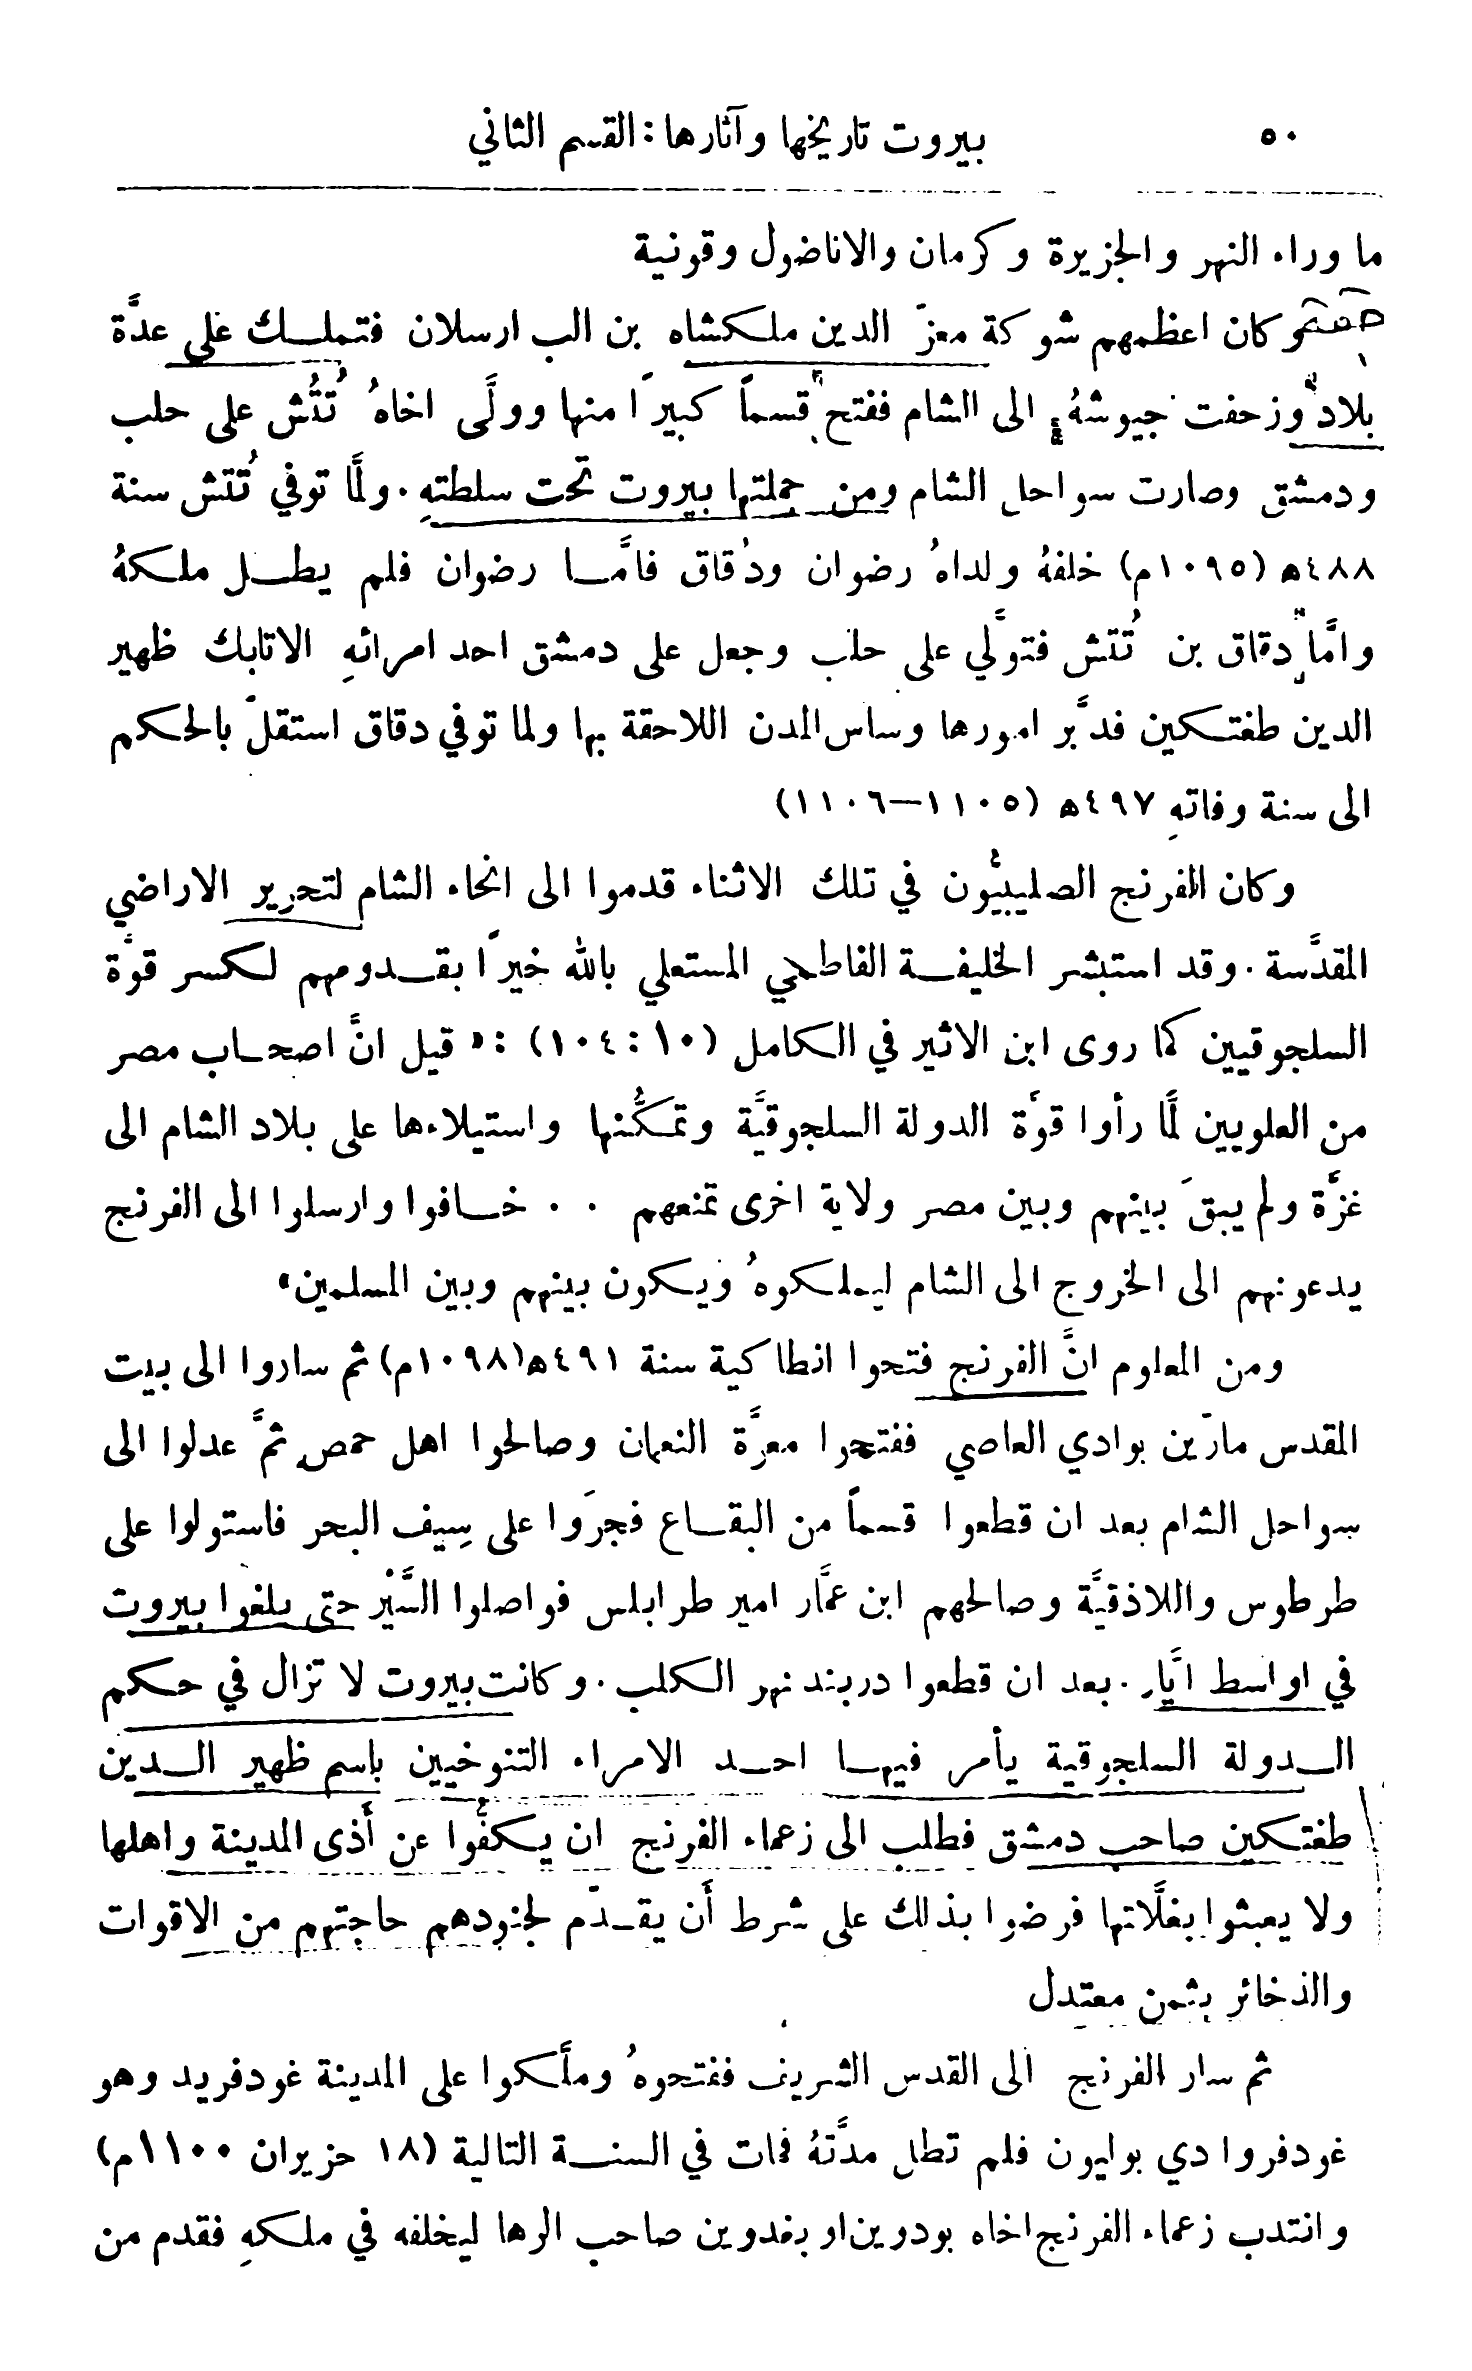 ٥٠ بيروت تاريخها وآثارها: القسم الثاني
ما وراء النهر والجزيرة وكرمان والاناضول وقونية
وكان اعظمهم شوكة معزّ الدين ملكشاه بن الب ارسلان فتملك على عدَّة
بلاد وزحفت جيوشهُ الى الشام ففتح قسماً كبيرًا منها وولَّى اخاهُ تُتُش على حلب
ودمشق وصارت سواحل الشام ومن جملتها بيروت تحت سلطتهِ. ولمَّا توفي تُتش سنة
٤٨٨ھ (١٠٩٥م) خلفهُ ولداهُ رضوان ودُقاق فامَّا رضوان فلم يطل ملكهُ
وامَّا دقاق بن تُتش فتولَّي على حلب وجعل على دمشق احد امرائهِ الاتابك ظهير
الدين طغتكين فدبَّر امورها وساس المدن اللاحقة بها ولما توفي دقاق استقلّ بالحكم
الى سنة وفاتهِ ٤٩٧ھ (١١٠٥–١١٠٦)
وكان الفرنج الصليبيُّون في تلك الاثناء قدموا الى انحاء الشام لتحرير الاراضي
المقدَّسة. وقد استبشر الخليفة الفاطمي المستعلي بالله خيرًا بقدومهم لكسر قوَّة
السلجوقيين كما روى ابن الاثير في الكامل (١٠: ١٠٤) : «قيل انَّ اصحاب مصر
من العلويين لمَّا رأوا قوَّة الدولة السلجوقيَّة وتمكُّنها واستيلاءها على بلاد الشام الى
غزَّة ولم يبقَ بينهم وبين مصر ولاية اخرى تمنعهم . . خافوا وارسلوا الى الفرنج
يدعونهم الى الخروج الى الشام ليملكوهُ ويكون بينهم وبين المسلمين»
ومن المعلوم انَّ الفرنج فتحوا انطاكية سنة ٤٩١ھ (١٠٩٨م) ثم ساروا الى بيت
المقدس مارّين بوادي العاصي ففتحوا معرَّة النعمان وصالحوا اهل حمص ثمَّ عدلوا الى
سواحل الشام بعد ان قطعوا قسماً من البقاع فجرَوا على سِيف البحر فاستولوا على
طرطوس واللاذقيَّة وصالحهم ابن عمَّار امير طرابلس فواصلوا السَّيْر حتى بلغوا بيروت
في اواسط ايَّار. بعد ان قطعوا دربند نهر الكلب. وكانت بيروت لا تزال في حكم
الدولة السلجوقية يأمر فيها احد الامراء التنوخيين باسم ظهير الدين
طغتكين صاحب دمشق فطلب الى زعماء الفرنج ان يكفُّوا عن أَذى المدينة واهلها
ولا يعبثوا بغلَّاتها فرضوا بذلك على شرط أَن يقدّم لجنودهم حاجتهم من الاقوات
والذخائر بثمن معتدل
ثم سار الفرنج الى القدس الشريف ففتحوهُ وملَّكوا على المدينة غودفريد وهو
غودفروا دي بوليون فلم تطل مدَّتهُ فمات في السنة التالية (١٨ حزيران ١١٠٠م)
وانتدب زعماء الفرنج اخاه بودوين او بغدوين صاحب الرها ليخلفه في ملكهِ فقدم من